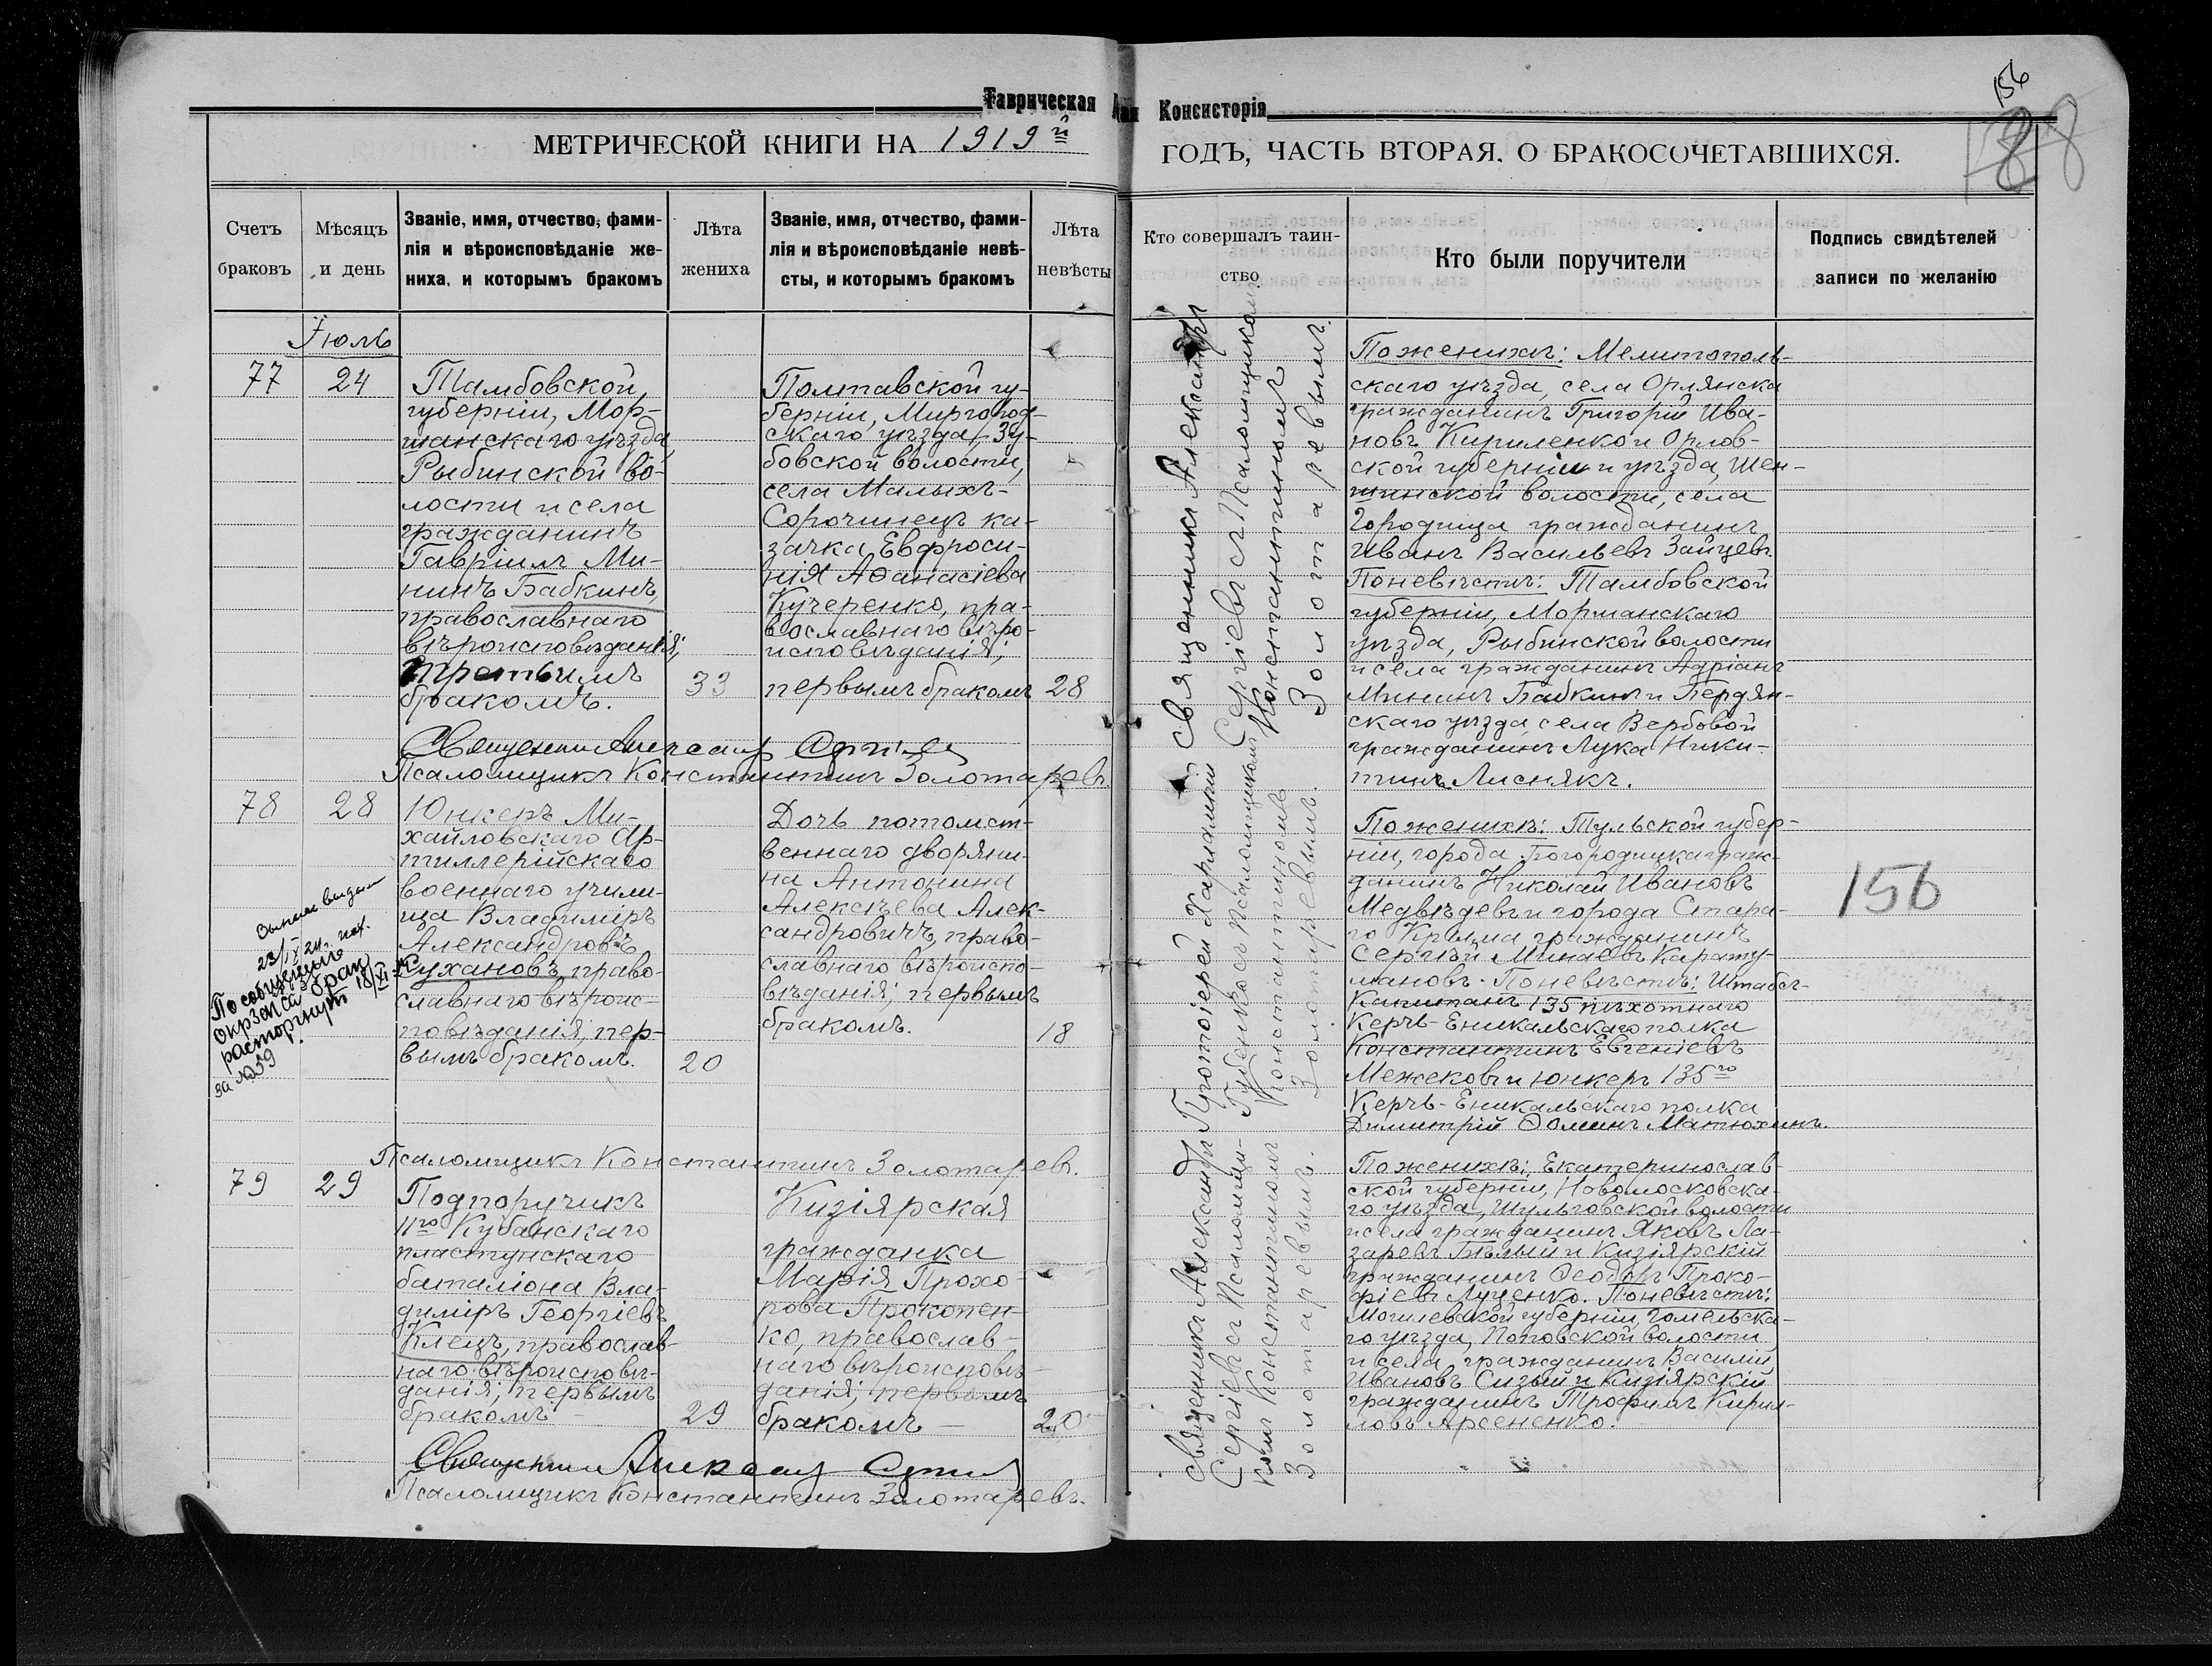 Таврическая
Консисторія
156
МЕТРИЧЕСКОЙ КНИГИ НА 1919й
ГОДЪ, ЧАСТЬ ВТОРАЯ, О БРАКОСОЧЕТАВШИХСЯ.
Счетъ
браковъ
Мѣсяцъ
и день
Званіе, имя, отчество, фами-
лія и вѣроисповѣданіе же-
ниха, и которымъ бракомъ
Лѣта
жениха
Званіе, имя, отчество, фами-
лія и вѣроисповѣданіе невѣ-
сты, и которымъ бракомъ
Лѣта
невѣсты
Кто совершалъ таин-
ство
Кто были поручители
Подпись свидѣтелей
записи по желанію
Іюль
77
24
Тамбовской
губерніи, Мор-
шанскаго уѣзда,
Рыбинской во-
лости и села
гражданинъ
Гавріилъ Ми-
нинъ Бабкинъ,
православнаго
вѣроисповѣданія;
третьимъ
бракомъ.
33
Полтавской гу-
берніи, Миргород-
скаго уѣзда, Зу-
бовской волости,
села Малыхъ-
Сорочинецъ ка-
зачка Евфроси-
нія Аѳанасіева
Кучеренко, пра-
вославнаго вѣро-
исповѣданія;
первымъ бракомъ
28
Священникъ Александръ
Сергіевъ съ Псаломщикомъ
Константиномъ
Золотаревымъ.
По женихѣ: Мелитополь-
скаго уѣзда, села Орлянска
гражданинъ Григорій Ива-
новъ Кириленко и Орлов-
ской губерніи и уѣзда, Шен-
шинской волости, села
Городища гражданинъ
Иванъ Васильевъ Зайцевъ.
По невѣстѣ: Тамбовской
губерніи, Моршанскаго
уѣзда, Рыбинской волости
и села гражданинъ Адріанъ
Мининъ Бабкинъ и Бердян-
скаго уѣзда, села Вербовой
гражданинъ Лука Ники-
тинъ Лиснякъ.
Священникъ Александръ Сергіевъ
Псаломщикъ Константинъ Золотаревъ.
78
28
выпись выдан
23/IX 24 г. исх.
По сообщенію
Окрзагса брак
расторгнут 18/XI
за № 59
Юнкеръ Ми-
хайловскаго Ар-
тиллерійскаго
военнаго учили-
ща Владиміръ
Александровъ
Кухановъ, право-
славнаго вѣроис-
повѣданія; пер-
вымъ бракомъ.
20
Дочь потомст-
веннаго дворяни-
на Антонина
Алексѣева Алек-
сандровичъ, право-
славнаго вѣроиспо-
вѣданія; первымъ
бракомъ.
18
Протоіерей Харлампій
Губенко съ Псаломщикомъ
Константиномъ
Золотаревымъ.
По женихѣ: Тульской губер-
ніи, города Богородицка граж-
данинъ Николай Ивановъ
Медвѣдевъ и города Стара-
го Крыма гражданинъ
Сергѣй Минаевъ Карату-
мановъ. По невѣстѣ: Штабсъ-
Капитанъ 135 пѣхотнаго
Керчь-Еникальскаго полка
Константинъ Евгеніевъ
Межековъ и юнкеръ 135го
Керчь-Еникальскаго полка
Димитрій Ѳоминъ Матюхинъ.
156
Псаломщикъ Константинъ Золотаревъ.
79
29
Подпоручикъ
11го Кубанскаго
пластунскаго
баталіона Вла-
диміръ Георгіевъ
Клецъ, православ-
наго вѣроисповѣ-
данія; первымъ
бракомъ
29
Кизіярская
гражданка
Марія Прохо-
рова Прокопен-
ко, православ-
наго вѣроисповѣ-
данія; первымъ
бракомъ
20
Священникъ Александръ
Сергіевъ съ Псаломщи-
комъ Константиномъ
Золотаревымъ.
По женихѣ: Екатеринослав-
ской губерніи, Новомосковска-
го уѣзда, Шульговской волости
и села гражданинъ Яковъ Ла-
заревъ Бѣлый и Кизіярскій
гражданинъ Ѳеодоръ Проко-
фіевъ Луценко. По невѣстѣ:
Могилевской губерніи, Гомельска-
го уѣзда, Поповской волости
и села, гражданинъ Василій
Ивановъ Сизый и Кизіярскій
гражданинъ Трофимъ Кирил-
ловъ Арсененко.
Священникъ Александръ Сергіевъ
Псаломщикъ Константинъ Золотаревъ.